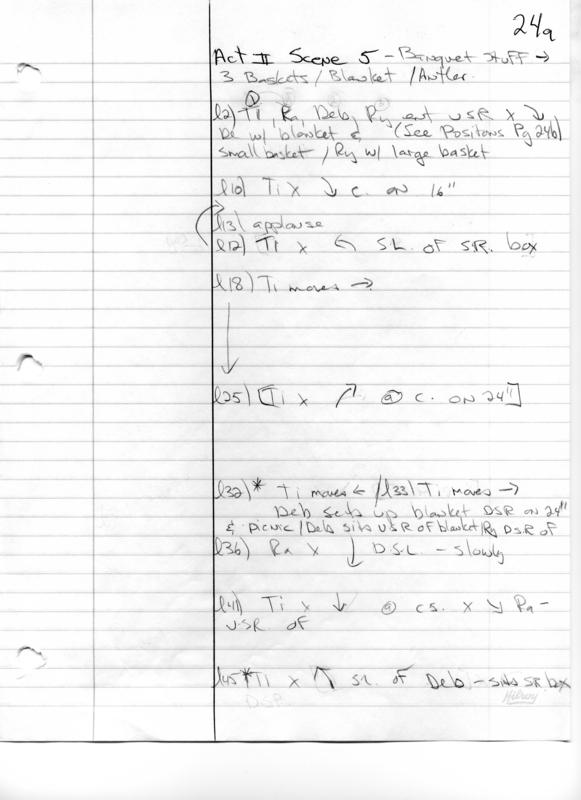 24a
Act II Scene 5 - Banquet stuff →
3 Baskets / Blanket / Antler
l2) Ti, Ra, Deb, Ry ent USR x ↘
De w/ blanket & (See Positons Pg 24b)
small basket / Ry w/ large basket
l10) Ti x ↘ c. on 16"
l13) applause
l12) Ti x S.L. OF S.R. box
l18) Ti moves →
l25) [Ti x ↗ @ C. ON 24"]
l32)* Ti moves ← / l33) Ti moves →
Deb sets up blanket DSR on 24"
& picnic / Deb sits USR of blanket / Ry DSR of
l36) Ra x ↓ D.S.L. - slowly
l41) Ti x ↓ @ cs. x ↘ Ra -
U.S.R. OF
l45* Ti x SL. of Deb - sits SR box
DSR
Hilroy